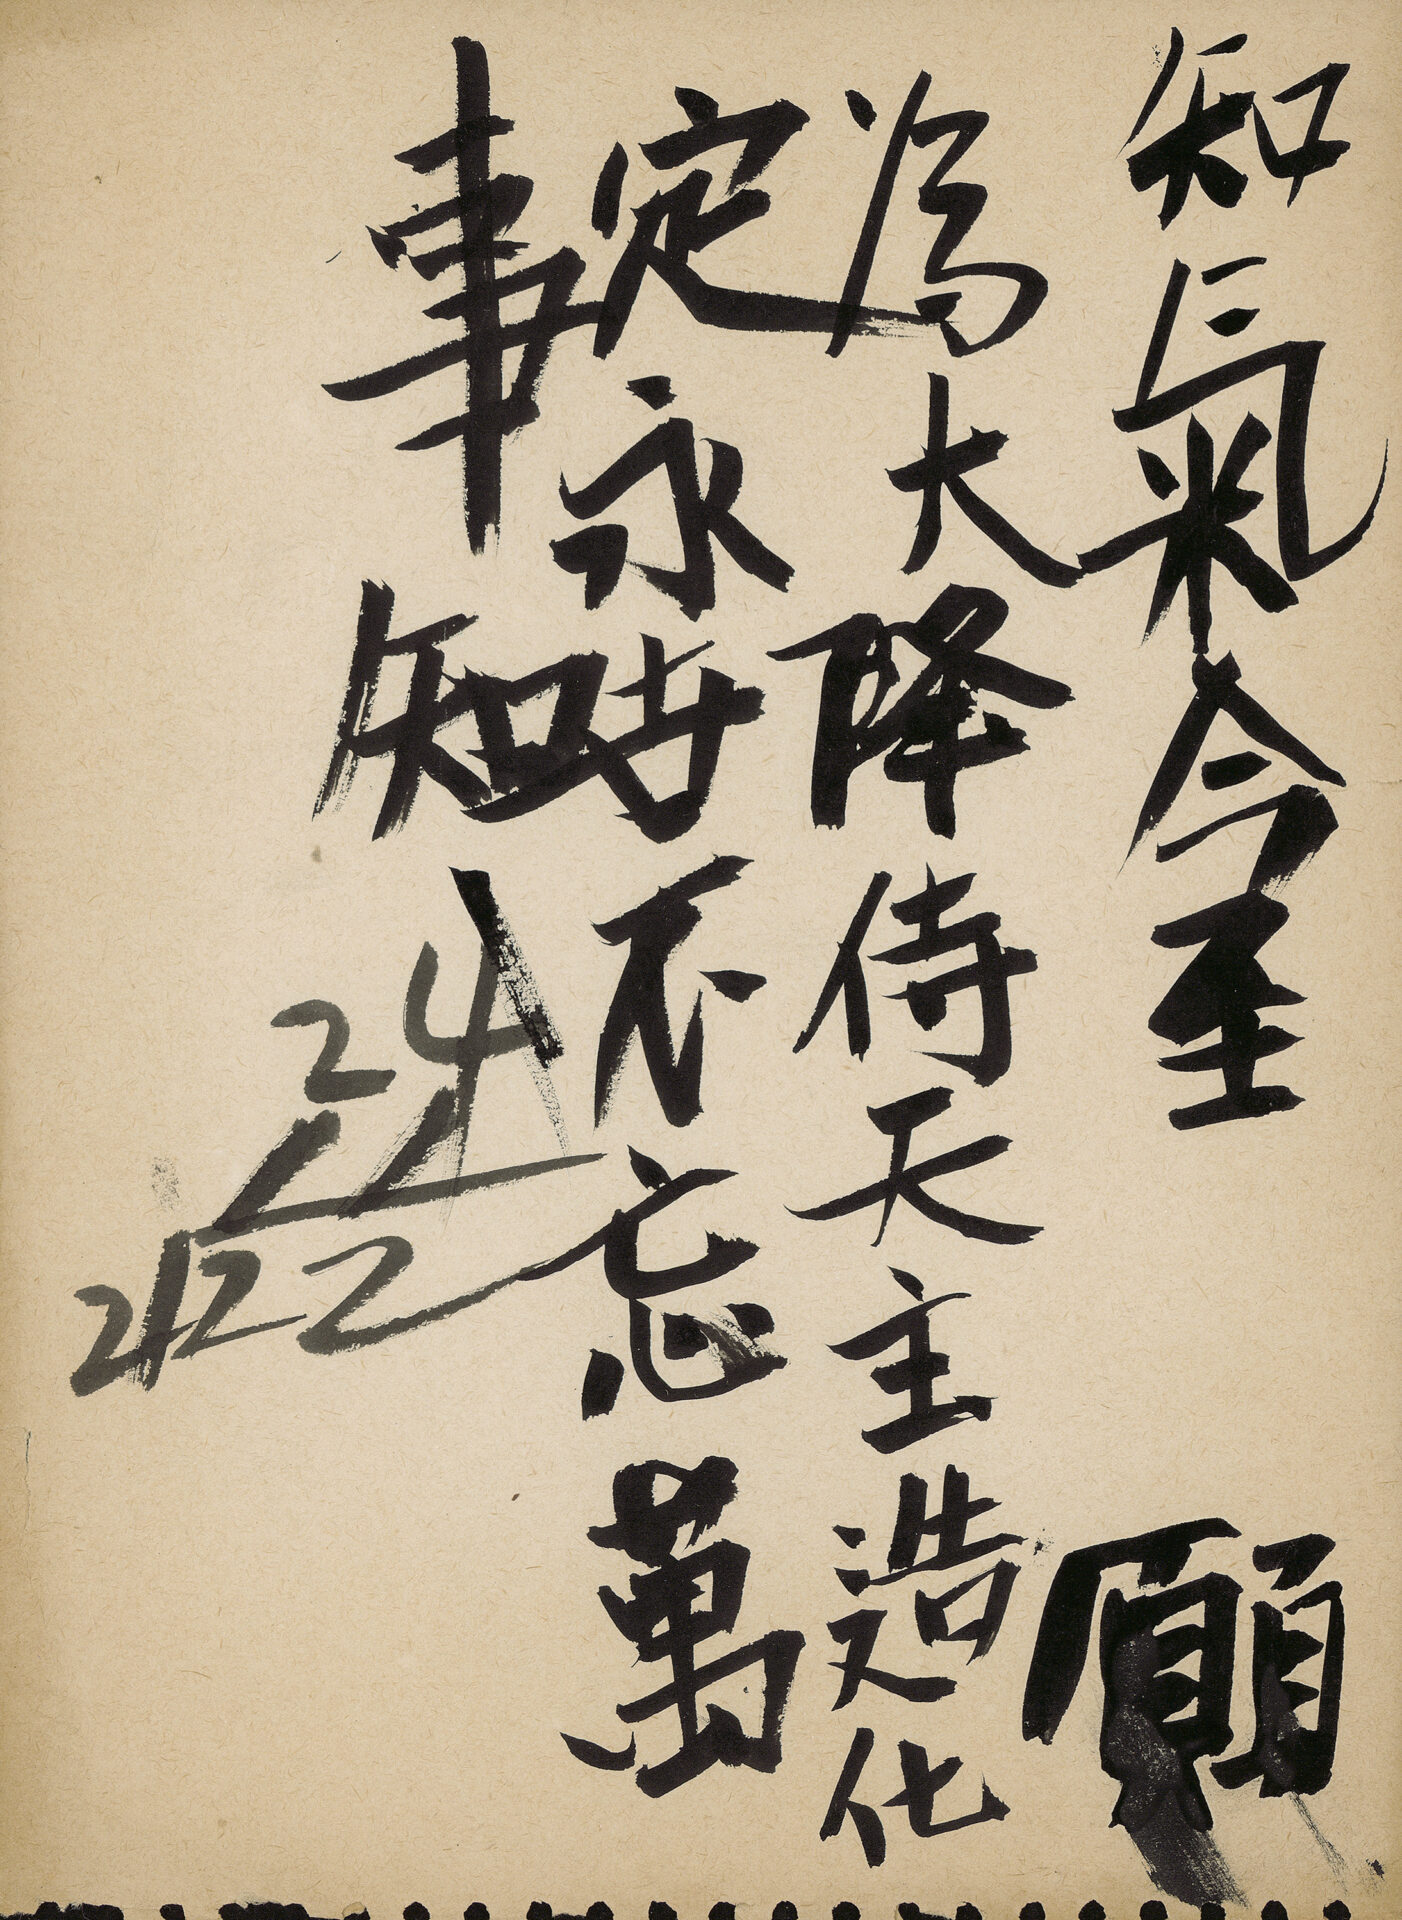 知氣今至 願
為大降侍天主造化
定永世不忘萬
事知